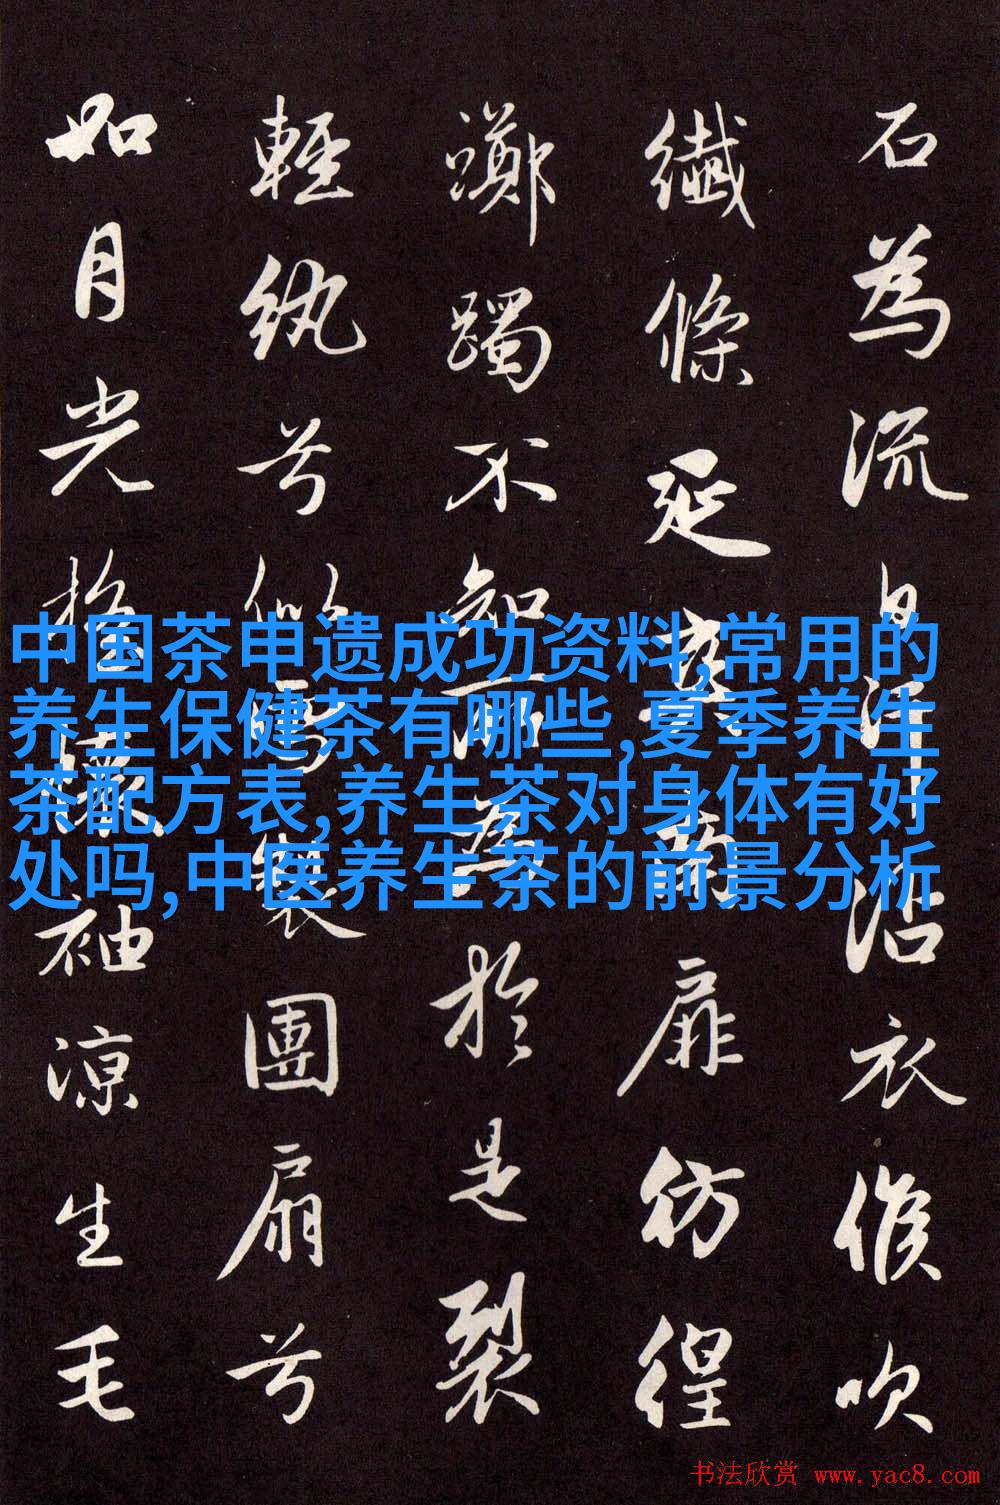 石為流沾衣吹
纖條延扉彷徨
躑躅不知所為於是裂
輕紈兮製團扇兮
如月光搖懷袖涼生毛
中国茶申遗成功资料,常用的
养生保健茶有哪些,夏季养生
茶配方表,养生茶对身体有好
处吗,中医养生茶的前景分析
书法欣赏 www.yac8.com